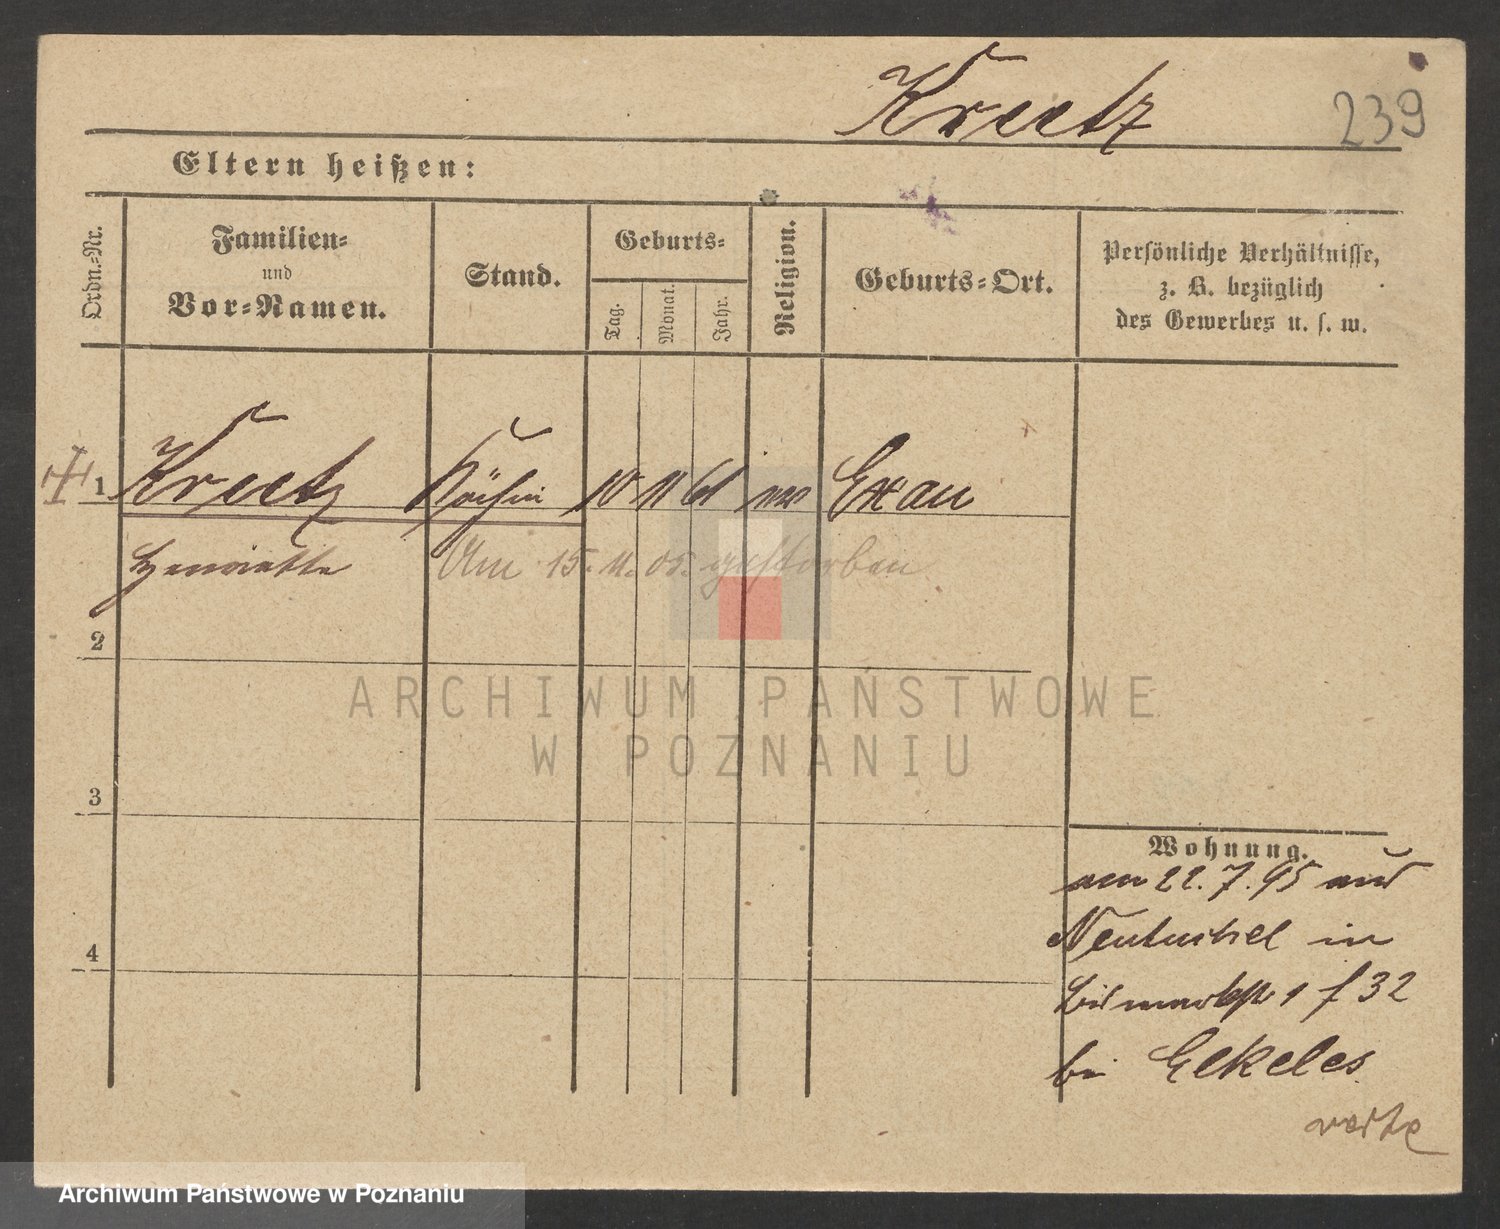 Kreetz 239
Eltern heißen:
Ordn.-Nr. Familien= und Vor=Namen. Stand. Geburts= Tag. Monat. Jahr. Religion. Geburts=Ort. Persönliche Verhältnisse, z. B. bezüglich des Gewerbes u. s. w.
1 Kreetz Köchin 10 11 61 Exau
Henriette Am 15. 11. 05. gestorben
2
3
4
Wohnung.
am 22. 7. 95 aus
in
Bismarckstr 1 f 32
bei Elkeles
verte
ARCHIWUM PAŃSTWOWE
W POZNANIU
Archiwum Państwowe w Poznaniu